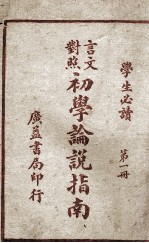 學生必讀
第一冊
言文對照
初學論說指南
廣益書局印行